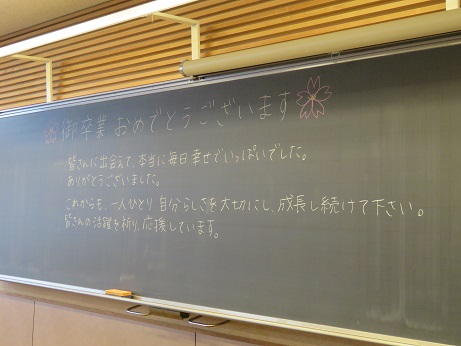 御卒業おめでとうございます
皆さんに出会えて、本当に毎日幸せでいっぱいでした。
ありがとうございました。
これからも、一人ひとり自分らしさを大切にし、成長し続けて下さい。
皆さんの活躍を祈り、応援しています。